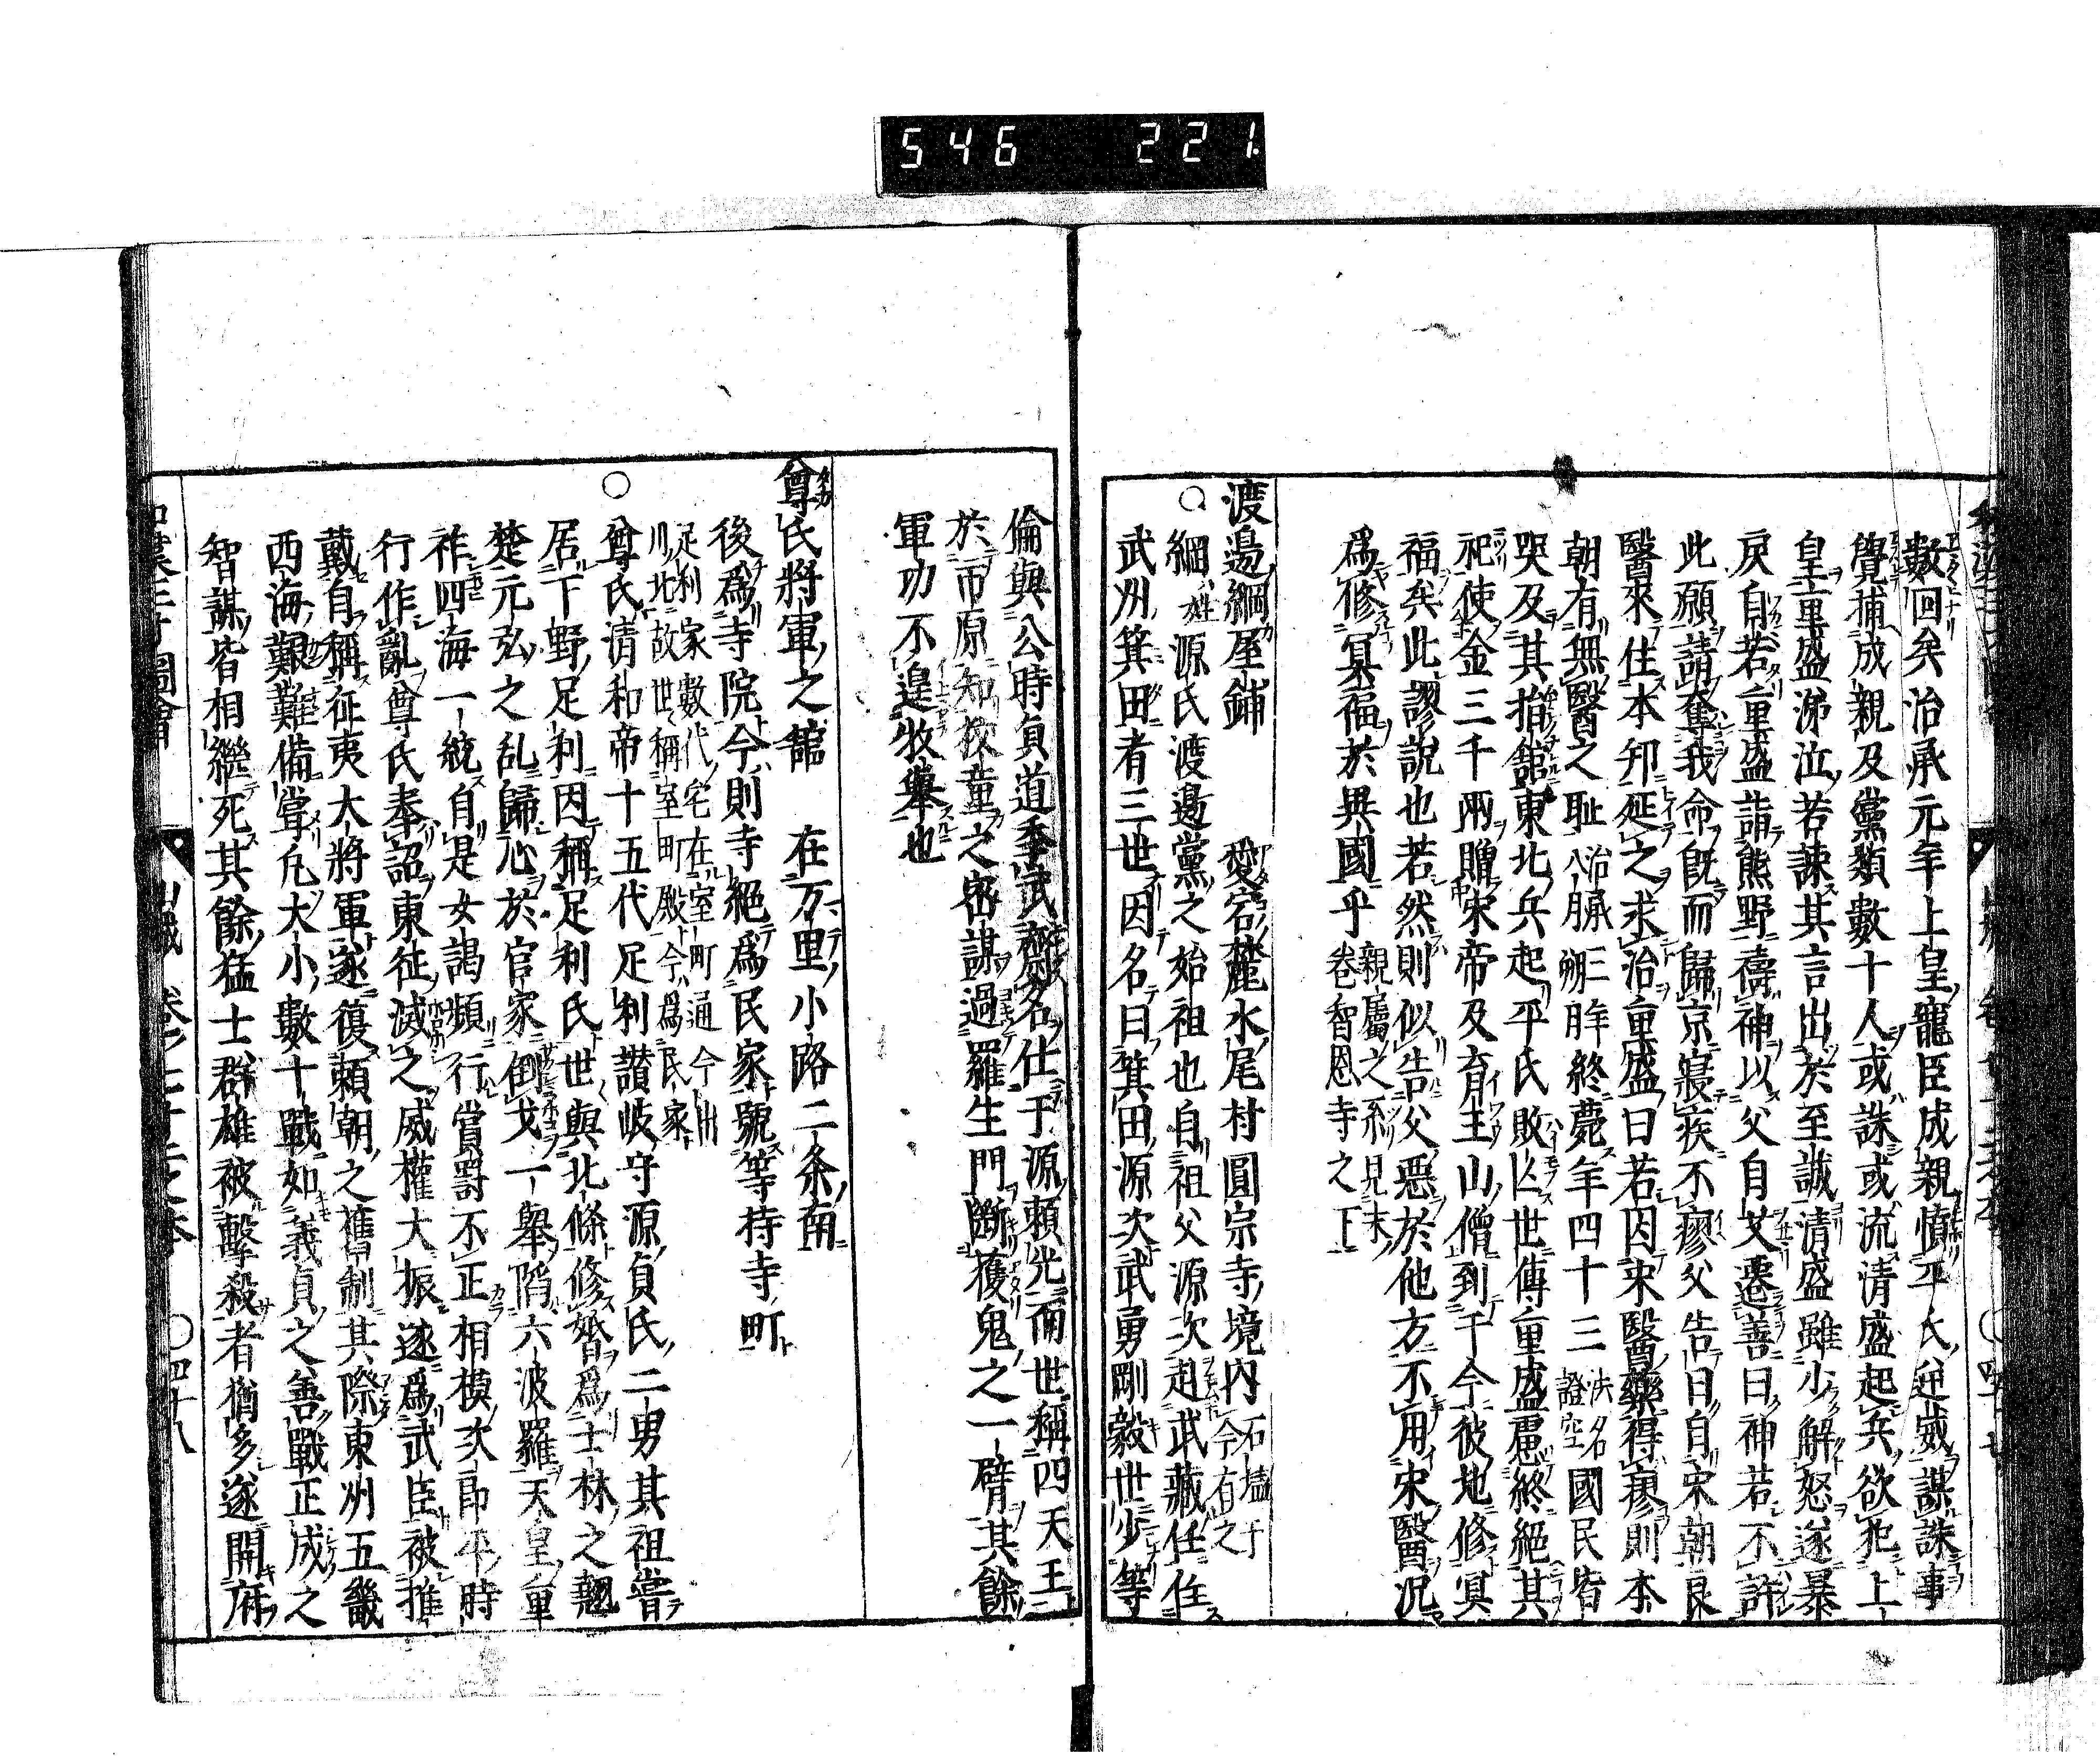 546 221
數回矣治承元年上皇寵臣成親憤平氏逆威謀誅事
覺捕成親及黨類數十人或誅或流清盛起兵欲犯上
皇重盛涕泣若諫其言出於至誠清盛雖少解怒遂暴
戾自若重盛詣熊野禱神以父自艾遷善曰神若不許
此願請奪我命既而歸京寢疾不瘳父告曰自宋朝良
醫來住本邦延之求治重盛曰若因宋醫藥得瘳則本
朝有無醫之耻治承三年終薨年四十三法名證空國民皆
哭及其捐館東北兵起平氏敗亡世傳重盛慮終絕其
祀使金三千兩贈宋帝及育王山僧到于今彼地修冥
福矣此謬說也若然則似告父惡於他方不用宋醫況
爲修冥福於異國乎親屬之系見末卷智恩寺之下
渡邉綱屋鋪 愛宕麓水尾村圓宗寺境內石塔于今有之
○綱姓源氏渡邉黨之始祖也自祖父源次赴武藏任住
武州箕田者三世因名曰箕田源次武勇剛毅世少等
倫與公時貞道季武齊名仕于源賴光而世稱四天王
於市原知狡童之密謀過羅生門斷獲鬼之一臂其餘
軍功不遑牧擧也
尊氏將軍之舘 在万里小路二条南
後爲寺院今則寺絕爲民家號等持寺町
足利家數代宅在室町通今出
川北故世稱室町殿今爲民家
○尊氏清和帝十五代足利讃岐守源貞氏二男其祖嘗
居下野足利因稱足利氏世與北條修婚爲士林之翹
楚元弘之乱歸心於官家倒戈一擧陷六波羅天皇重
祚四海一統自是女謁頻行賞罰不正相模次郎平時
行作亂尊氏奉詔東征滅之威權大振遂爲武臣被推
戴自稱征夷大將軍遂復賴朝之舊制其際東州五畿
西海艱難備嘗凢大小數十戰如義貞之善戰正成之
智謀皆相繼死其餘猛士群雄被擊殺者猶多遂開府
山城 卷之七十二之本 ○四十八